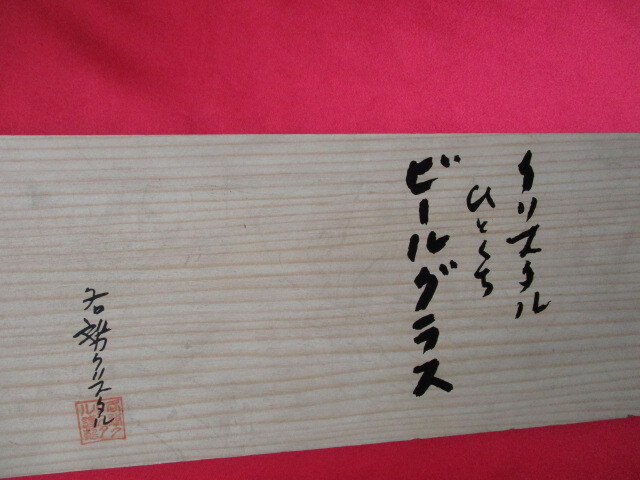 クリスタル
ひとくち
ビールグラス
クリスタル